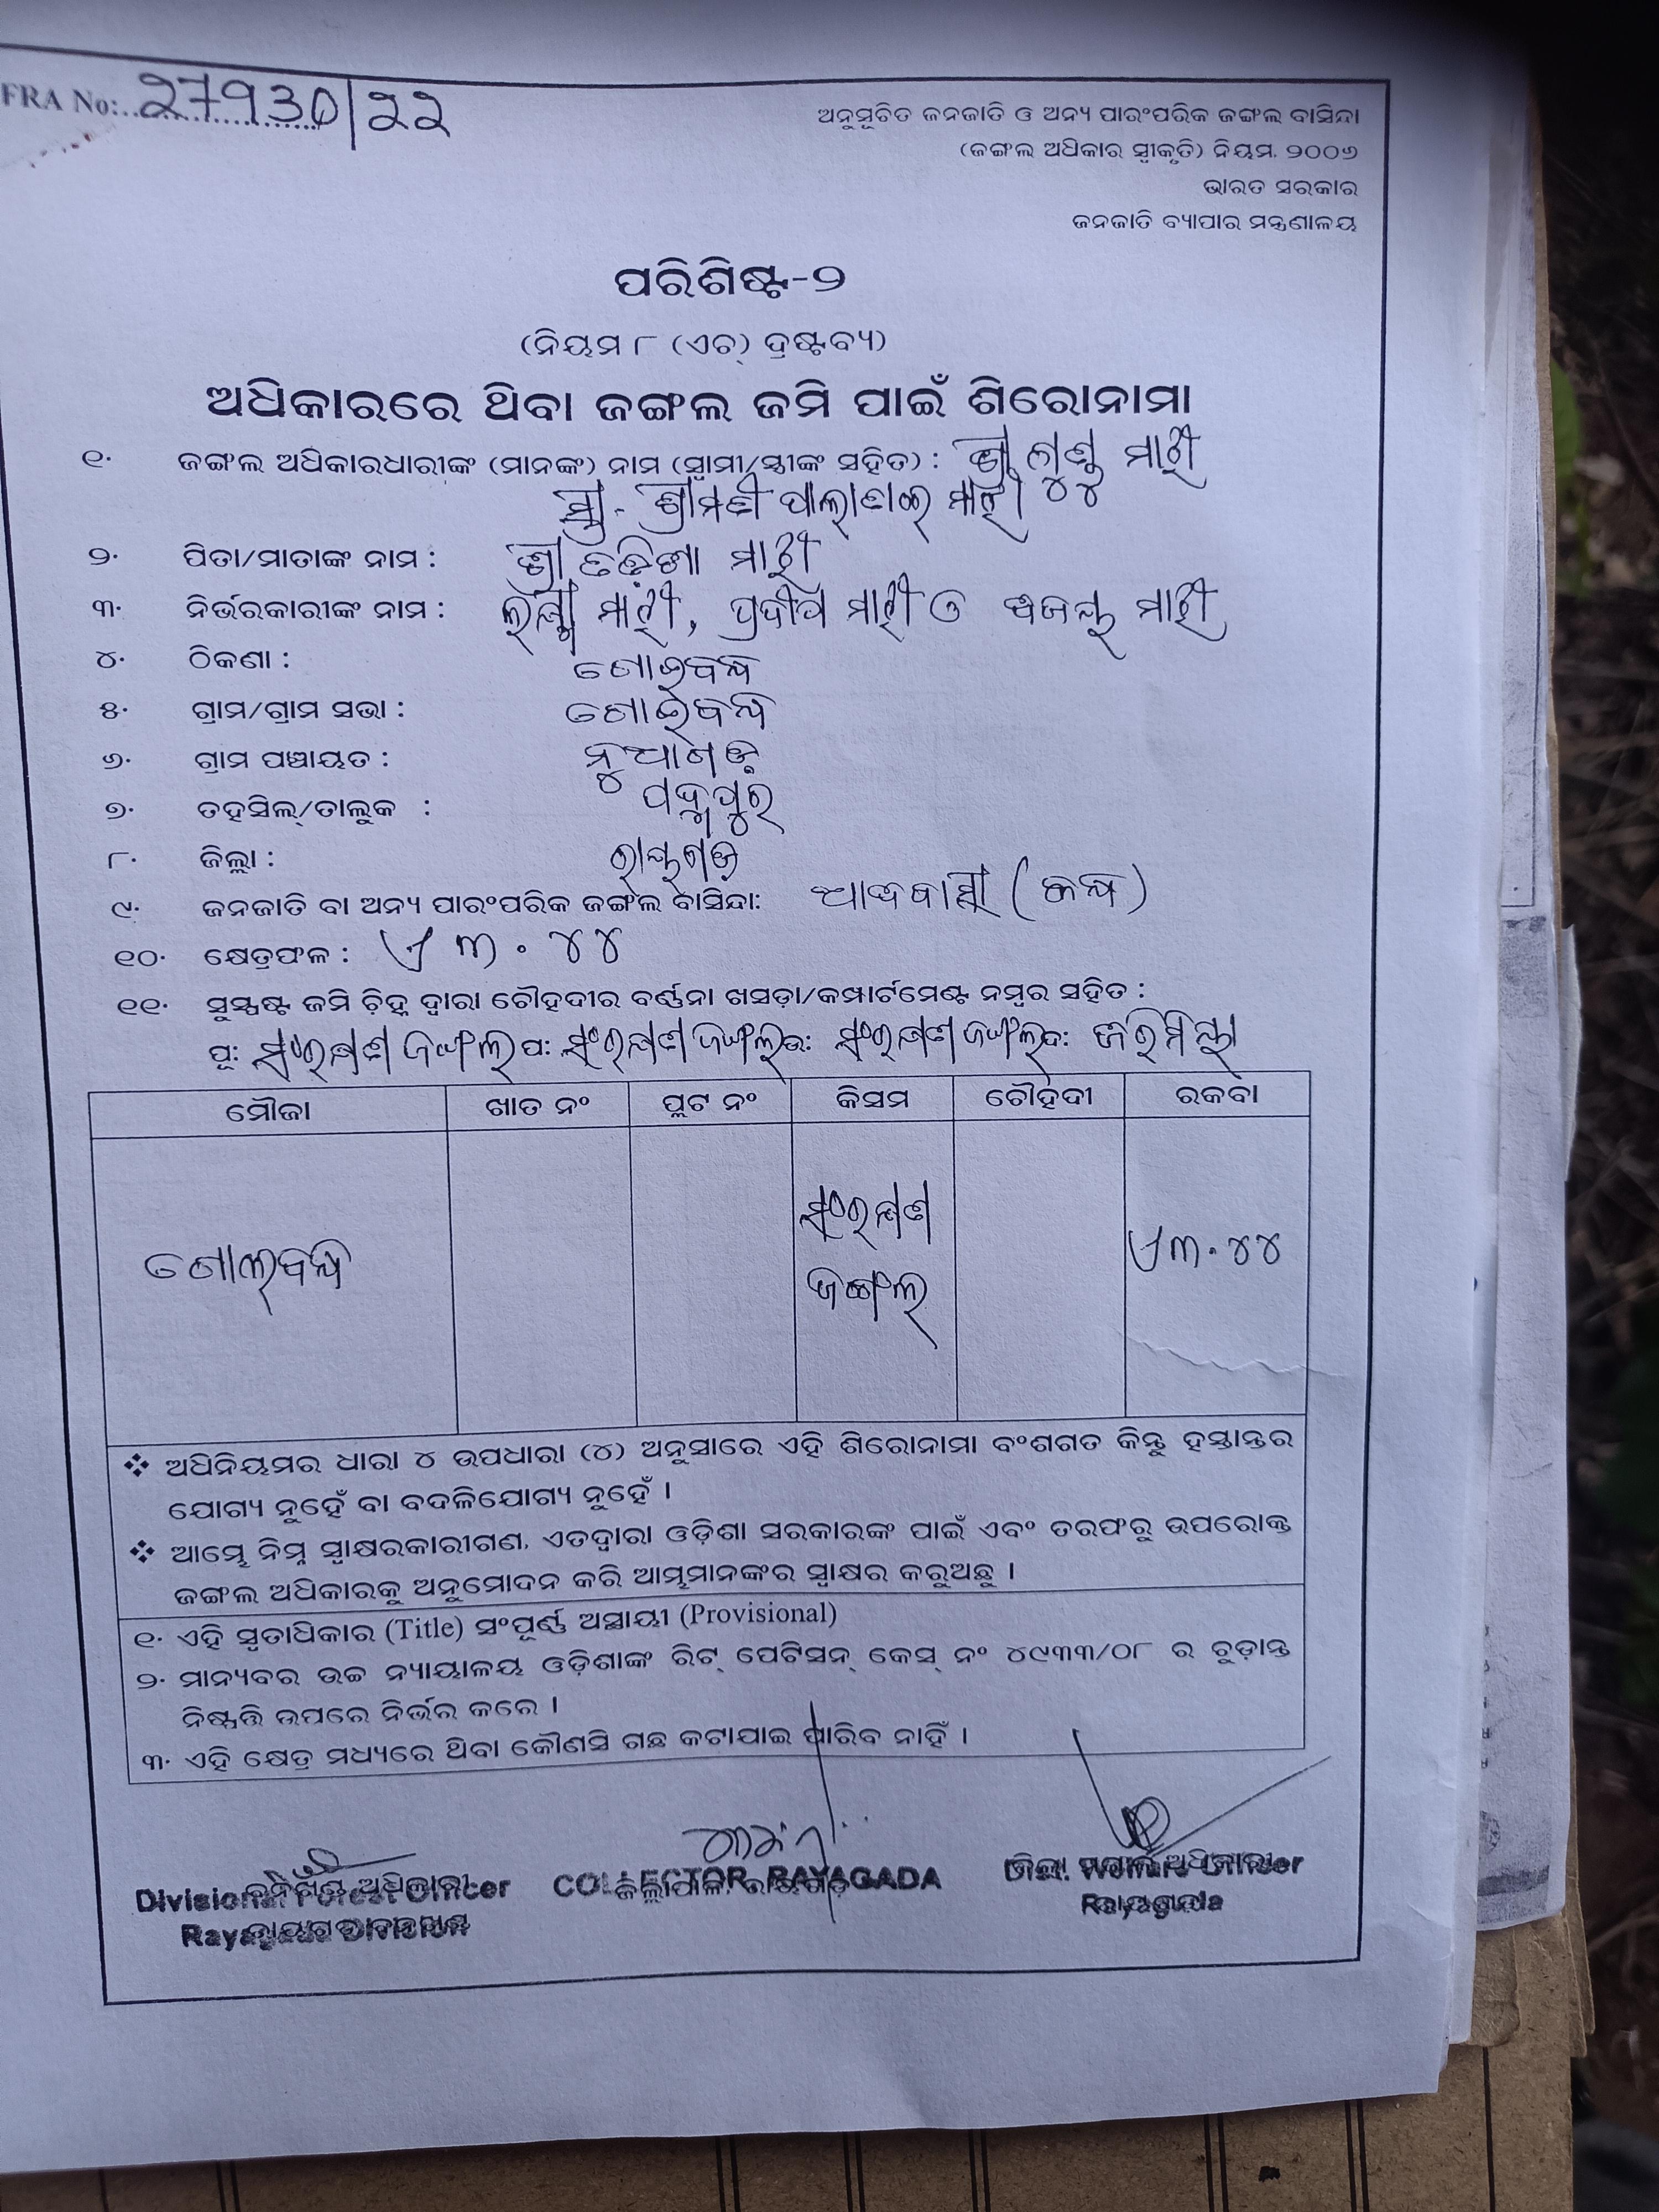 FRA No:..27930/22
ଅନୁସୂଚିତ ଜନଜାତି ଓ ଅନ୍ୟ ପାରଂପରିକ ଜଙ୍ଗଲ ବାସିନ୍ଦା
(ଜଙ୍ଗଲ ଅଧିକାର ସ୍ୱୀକୃତି) ନିୟମ, ୨୦୦୬
ଭାରତ ସରକାର
ଜନଜାତି ବ୍ୟାପାର ମନ୍ତ୍ରଣାଳୟ
ପରିଶିଷ୍ଟ-୨
(ନିୟମ ୮ (ଏଚ୍) ଦ୍ରଷ୍ଟବ୍ୟ)
ଅଧିକାରରେ ଥିବା ଜଙ୍ଗଲ ଜମି ପାଇଁ ଶିରୋନାମା
୧. ଜଙ୍ଗଲ ଅଧିକାରଧାରୀଙ୍କ (ମାନଙ୍କ) ନାମ (ସ୍ୱାମୀ/ସ୍ତ୍ରୀଙ୍କ ସହିତ) : ଶ୍ରୀ ମାଝୀ
ସ୍ତ୍ରୀ - ଶ୍ରୀମତୀ ମାଝୀ
୨. ପିତା/ମାତାଙ୍କ ନାମ : ଶ୍ରୀ ମାଝୀ
୩. ନିର୍ଭରକାରୀଙ୍କ ନାମ : ମାଝୀ, ପ୍ରଦୀପ ମାଝୀ ଓ ମାଝୀ
୪. ଠିକଣା :
୫. ଗ୍ରାମ/ଗ୍ରାମ ସଭା :
୬. ଗ୍ରାମ ପଞ୍ଚାୟତ : ନୁଆଗଡ଼
୭. ତହସିଲ୍/ତାଲୁକ : ପଦ୍ମପୁର
୮. ଜିଲ୍ଲା : ରାୟଗଡ଼
୯. ଜନଜାତି ବା ଅନ୍ୟ ପାରଂପରିକ ଜଙ୍ଗଲ ବାସିନ୍ଦା: ଆଦିବାସୀ (କନ୍ଧ)
୧୦. କ୍ଷେତ୍ରଫଳ : ଏ ୩.୪୪
୧୧. ସୁସ୍ପଷ୍ଟ ଜମି ଚିହ୍ନ ଦ୍ୱାରା ଚୌହଦୀର ବର୍ଣ୍ଣନା ଖସଡ଼ା/କମ୍ପାର୍ଟମେଣ୍ଟ ନମ୍ବର ସହିତ :
ପୂ: ସଂରକ୍ଷଣ ଜଙ୍ଗଲ ପ: ସଂରକ୍ଷଣ ଜଙ୍ଗଲ ଉ: ସଂରକ୍ଷଣ ଜଙ୍ଗଲ ଦ:
ମୌଜା ଖାତ ନଂ ପ୍ଲଟ ନଂ କିସମ ଚୌହଦୀ ରକବା
ସଂରକ୍ଷଣ
ଜଙ୍ଗଲ
ଏ ୩.୪୪
❖ ଅଧିନିୟମର ଧାରା ୪ ଉପଧାରା (୪) ଅନୁସାରେ ଏହି ଶିରୋନାମା ବଂଶଗତ କିନ୍ତୁ ହସ୍ତାନ୍ତର
ଯୋଗ୍ୟ ନୁହେଁ ବା ବଦଳିଯୋଗ୍ୟ ନୁହେଁ ।
❖ ଆମ୍ଭେ ନିମ୍ନ ସ୍ୱାକ୍ଷରକାରୀଗଣ, ଏତଦ୍ୱାରା ଓଡ଼ିଶା ସରକାରଙ୍କ ପାଇଁ ଏବଂ ତରଫରୁ ଉପରୋକ୍ତ
ଜଙ୍ଗଲ ଅଧିକାରକୁ ଅନୁମୋଦନ କରି ଆମ୍ଭମାନଙ୍କର ସ୍ୱାକ୍ଷର କରୁଅଛୁ ।
୧. ଏହି ସ୍ୱତ୍ତାଧିକାର (Title) ସଂପୂର୍ଣ୍ଣ ଅସ୍ଥାୟୀ (Provisional)
୨. ମାନ୍ୟବର ଉଚ୍ଚ ନ୍ୟାୟାଳୟ ଓଡ଼ିଶାଙ୍କ ରିଟ୍ ପେଟିସନ୍ କେସ୍ ନଂ ୪୯୩୩/୦୮ ର ଚୁଡ଼ାନ୍ତ
ନିଷ୍ପତ୍ତି ଉପରେ ନିର୍ଭର କରେ ।
୩. ଏହି କ୍ଷେତ୍ର ମଧ୍ୟରେ ଥିବା କୌଣସି ଗଛ କଟାଯାଇ ପାରିବ ନାହିଁ ।
ବନଖଣ୍ଡ ଅଧିକାରୀ
Divisional Forest Officer
Rayagada Division
COLLECTOR, RAYAGADA
ଜିଲ୍ଲାପାଳ, ରାୟଗଡ଼
Dist. Welfare Officer
Rayagada